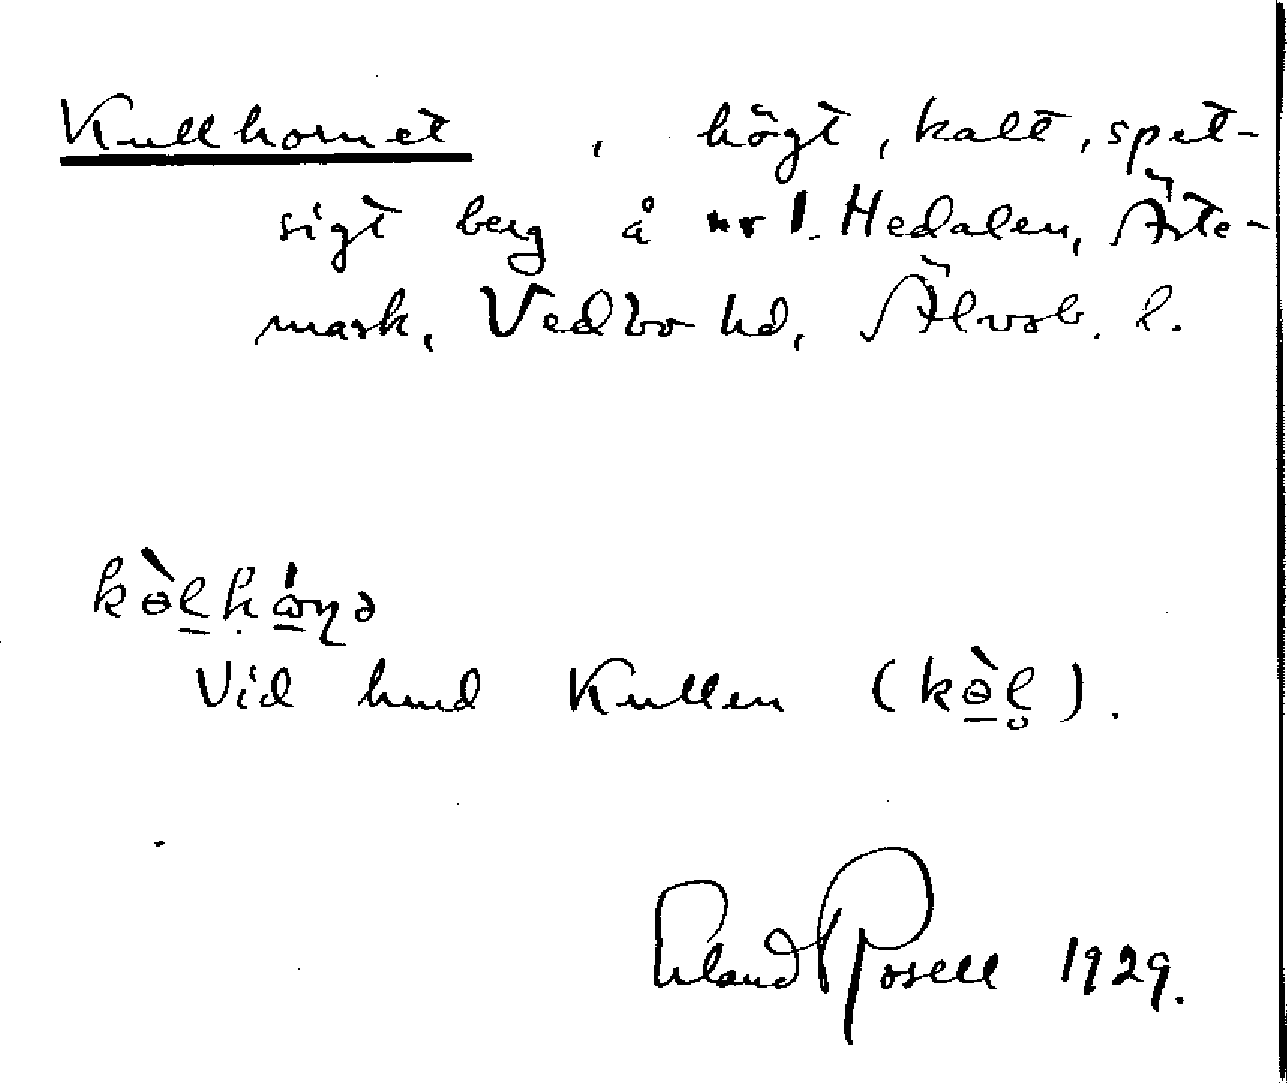 Kullhornet, högt, kalt, spet-
sigt berg å nr 1. Hedalen, Ärte-
mark, Vedbo hd, Älvsb. l.
Vid hmd Kullen
Erland Rosell 1929.